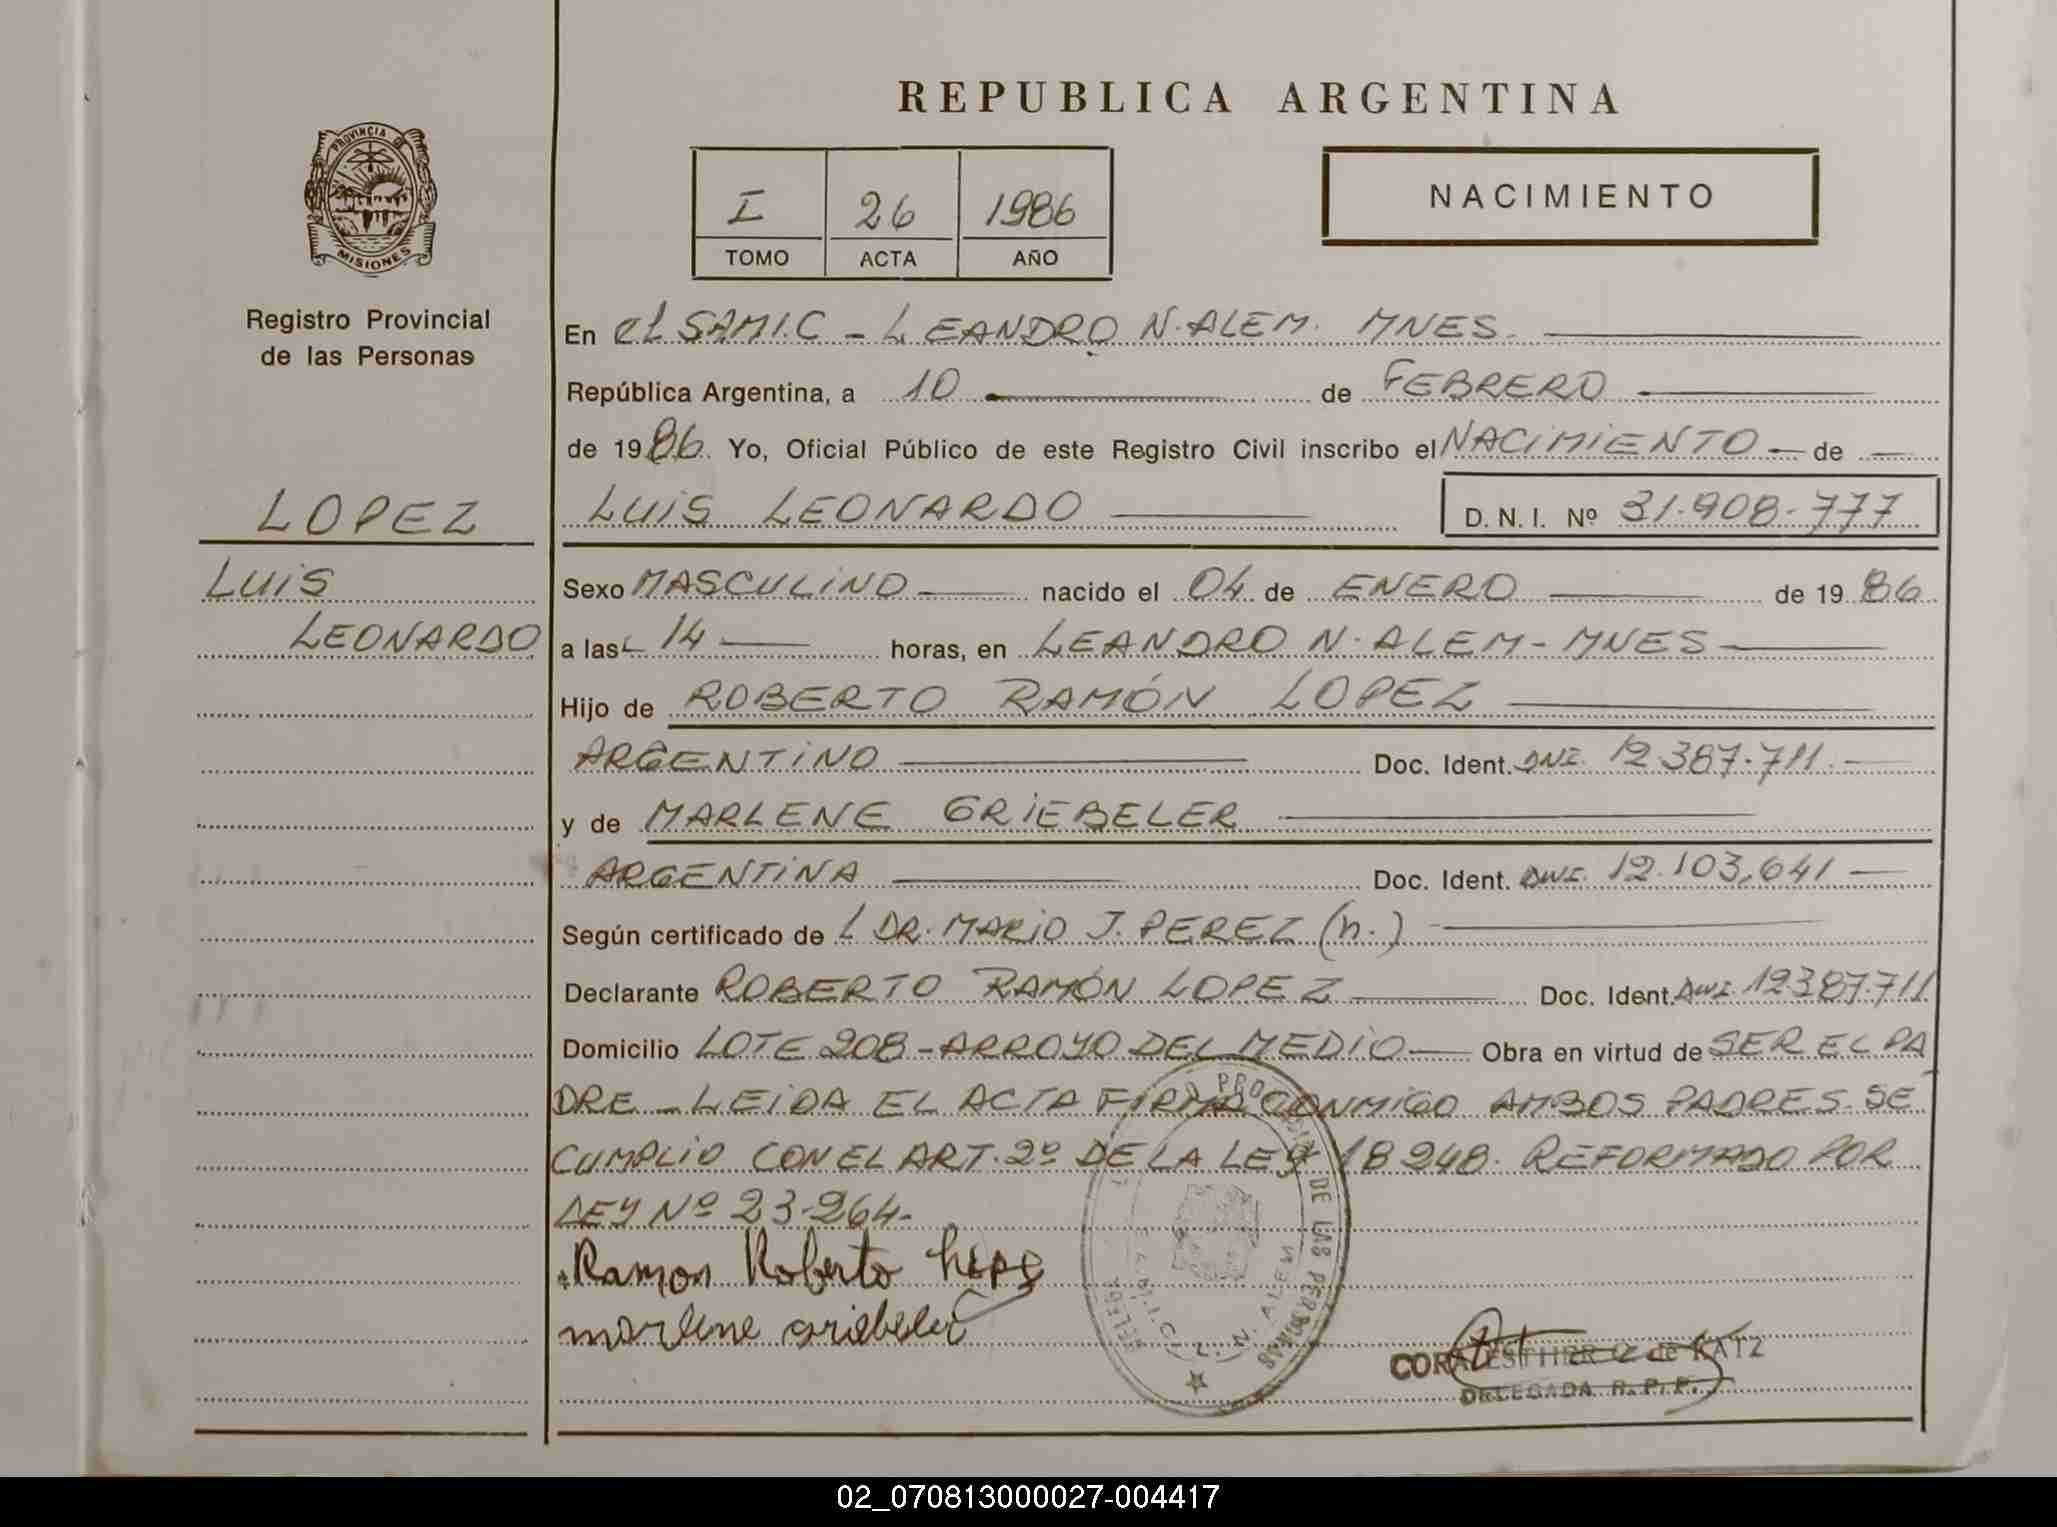 REPUBLICA ARGENTINA
PROVINCIA DE
MISIONES
Registro Provincial
de las Personas
I 26 1986
TOMO ACTA AÑO
NACIMIENTO
En el SAMI.C - LEANDRO N. ALEM. MNES.
República Argentina, a 10 de FEBRERO
de 1986. Yo, Oficial Público de este Registro Civil inscribo el NACIMIENTO de
LUIS LEONARDO D. N. I. Nº 31.908.777
LOPEZ
LUIS
LEONARDO
Sexo MASCULINO nacido el 04 de ENERO de 1986
a las 14 horas, en LEANDRO N. ALEM - MNES
Hijo de ROBERTO RAMÓN LOPEZ
ARGENTINO Doc. Ident. DNI. 12.387.711
y de MARLENE GRIEBELER
ARGENTINA Doc. Ident. DNI. 12.103.641
Según certificado de L DR. MARIO J. PEREZ (h.)
Declarante ROBERTO RAMÓN LOPEZ Doc. Ident. DNI. 12387.711
Domicilio LOTE 208 - ARROYO DEL MEDIO Obra en virtud de SER EL PA
DRE - LEIDA EL ACTA FIRMA CONMIGO AMBOS PADRES. SE
CUMPLIO CON EL ART. 2º DE LA LEY 18248. REFORMADO POR
LEY Nº 23.264.
Ramon Roberto Lopez
marlene griebeler
DE LAS PERSONAS
N. ALEM
CORA ESTHER de KATZ
DELEGADA R. P. P.
02_070813000027-004417